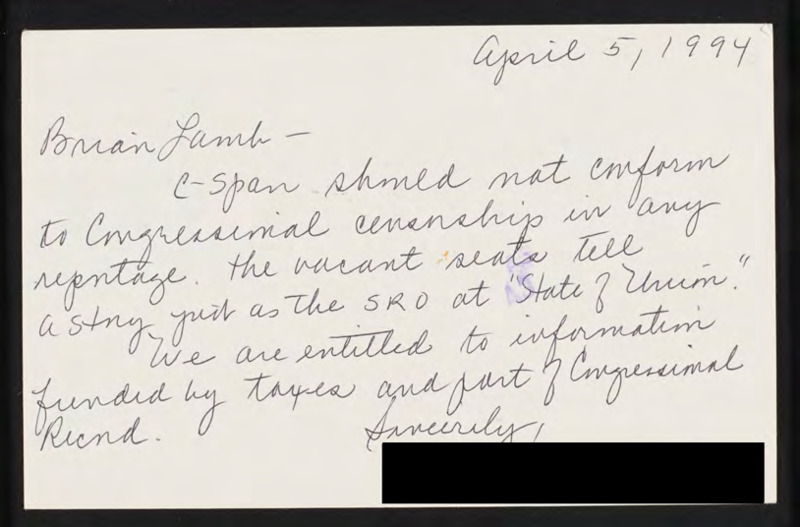 April 5, 1994
Brian Lamb —
C-Span should not conform
to Congressional censorship in any
reportage. The vacant seats tell
a story just as the SRO at "State of Union."
We are entitled to information
funded by taxes and part of Congressional
Record.
Sincerely,